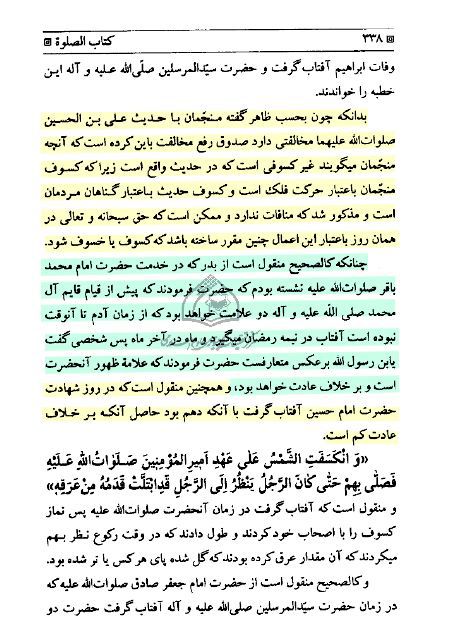 ۳۳۸ کتاب الصلوة
وفات ابراهیم آفتاب گرفت و حضرت سیّدالمرسلین صلّی‌الله علیه و آله این
خطبه را خواندند.
بدانکه چون بحسب ظاهر گفته منجّمان با حدیث علی بن الحسین
صلوات‌الله علیهما مخالفتی دارد صدوق رفع مخالفت باین کرده است که آنچه
منجّمان میگویند غیر کسوفی است که در حدیث واقع است زیرا که کسوف
منجّمان باعتبار حرکت فلک است و کسوف حدیث باعتبار گناهان مردمان
است و مذکور شد که منافات ندارد و ممکن است که حق سبحانه و تعالی در
همان روز باعتبار این اعمال چنین مقرر ساخته باشد که کسوف یا خسوف شود.
چنانکه کالصحیح منقول است از بدر که در خدمت حضرت امام محمد
باقر صلوات‌الله علیه نشسته بودم که حضرت فرمودند که پیش از قیام قایم آل
محمد صلی اللّه علیه و آله دو علامت خواهد بود که از زمان آدم تا آنوقت
نبوده است آفتاب در نیمه رمضان میگیرد و ماه در آخر ماه پس شخصی گفت
یابن رسول الله برعکس متعارفست حضرت فرمودند که علامة ظهور آنحضرت
است و بر خلاف عادت خواهد بود، و همچنین منقول است که در روز شهادت
حضرت امام حسین آفتاب گرفت با آنکه دهم بود حاصل آنکه بر خلاف
عادت کم است.
«وَ انْکَسَفَتِ الشَّمْسُ عَلٰی عَهْدِ اَمیرِ المُؤْمِنینَ صَلَوٰاتُ‌اللهِ عَلَیْهِ
فَصَلّٰی بِهِمْ حَتّٰی کٰانَ الرَّجُلُ یَنْظُرُ اِلَی الرَّجُلِ قَدِابْتَلَّتْ قَدَمُهُ مِنْ عَرَقِهِ»
و منقول است که آفتاب گرفت در زمان آنحضرت صلوات‌الله علیه پس نماز
کسوف را با اصحاب خود کردند و طول دادند که در وقت رکوع نظر بهم
میکردند که آن مقدار عرق کرده بودند که گل شده پای هر کس یا تر شده بود.
و کالصحیح منقول است از حضرت امام جعفر صادق صلوات‌الله علیه که
در زمان حضرت سیّدالمرسلین صلّی الله علیه و آله آفتاب گرفت حضرت دو